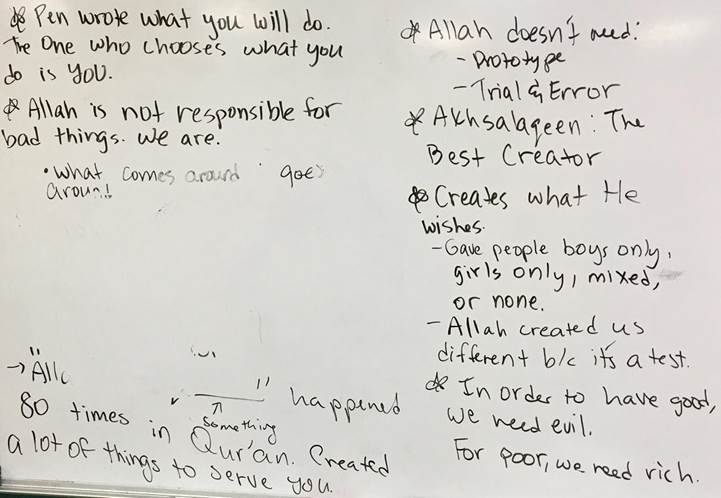 Pen wrote what you will do.
The One who chooses what you
do is YOU.
Allah is not responsible for
bad things. We are.
• What comes around goes
around!
→ "Alla
" happened
something
80 times in Qur'an. Created
a lot of things to serve you.
Allah doesn't need:
- Prototype
- Trial & Error
Akhsalaqeen: The
Best Creator
Creates what He
wishes.
- Gave people boys only,
girls only, mixed,
or none.
- Allah created us
different b/c it's a test.
In order to have good,
we need evil.
For poor, we need rich.